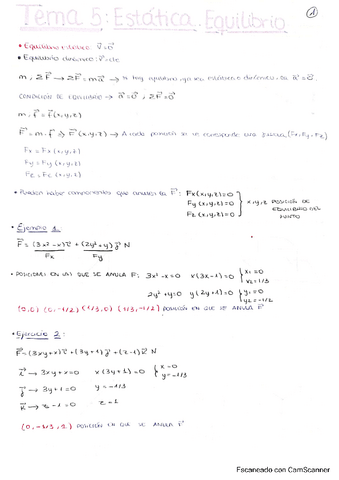 Tema 5: Estática. Equilibrio
1
• Equilibrio estático: v⃗=0⃗
• Equilibrio dinámico: v⃗=cte
m, ΣF⃗ → ΣF⃗ = ma⃗ → Si hay equilibrio ya sea estático o dinámico: a⃗=0⃗.
CONDICIÓN DE EQUILIBRIO → a⃗=0⃗, ΣF⃗=0⃗
F⃗(x,y,z) → A cada posición se le corresponde una fuerza (Fx, Fy, Fz)
Fx = Fx (x,y,z)
Fy = Fy (x,y,z)
Fz = Fz (x,y,z)
• Pueden haber componentes que anulan la F⃗:
Fx(x,y,z)=0
Fy(x,y,z)=0
Fz(x,y,z)=0
x,y,z POSICIÓN DE EQUILIBRIO DEL PUNTO
• Ejercicio 1
F⃗ = (3x²-x)i⃗ + (2y²+y)j⃗ N
Fx Fy
• POSICIONES EN LAS QUE SE ANULA F⃗: 3x²-x=0 x(3x-1)=0 { x₁=0 x₂=1/3
2y²+y=0 y(2y+1)=0 { y₁=0 y₂=-1/2
(0,0) (0,-1/2) (1/3,0) (1/3,-1/2) POSICIÓN EN QUE SE ANULA F⃗
• Ejercicio 2:
F⃗ = (3xy+x)i⃗ + (3y+1)j⃗ + (z-1)k⃗ N
i⃗ → 3xy+x=0 x(3y+1)=0 { x=0 y=-1/3
j⃗ → 3y+1=0 y=-1/3
k⃗ → z-1=0 z=1
(0,-1/3,1) POSICIÓN EN QUE SE ANULA F⃗
Escaneado con CamScanner